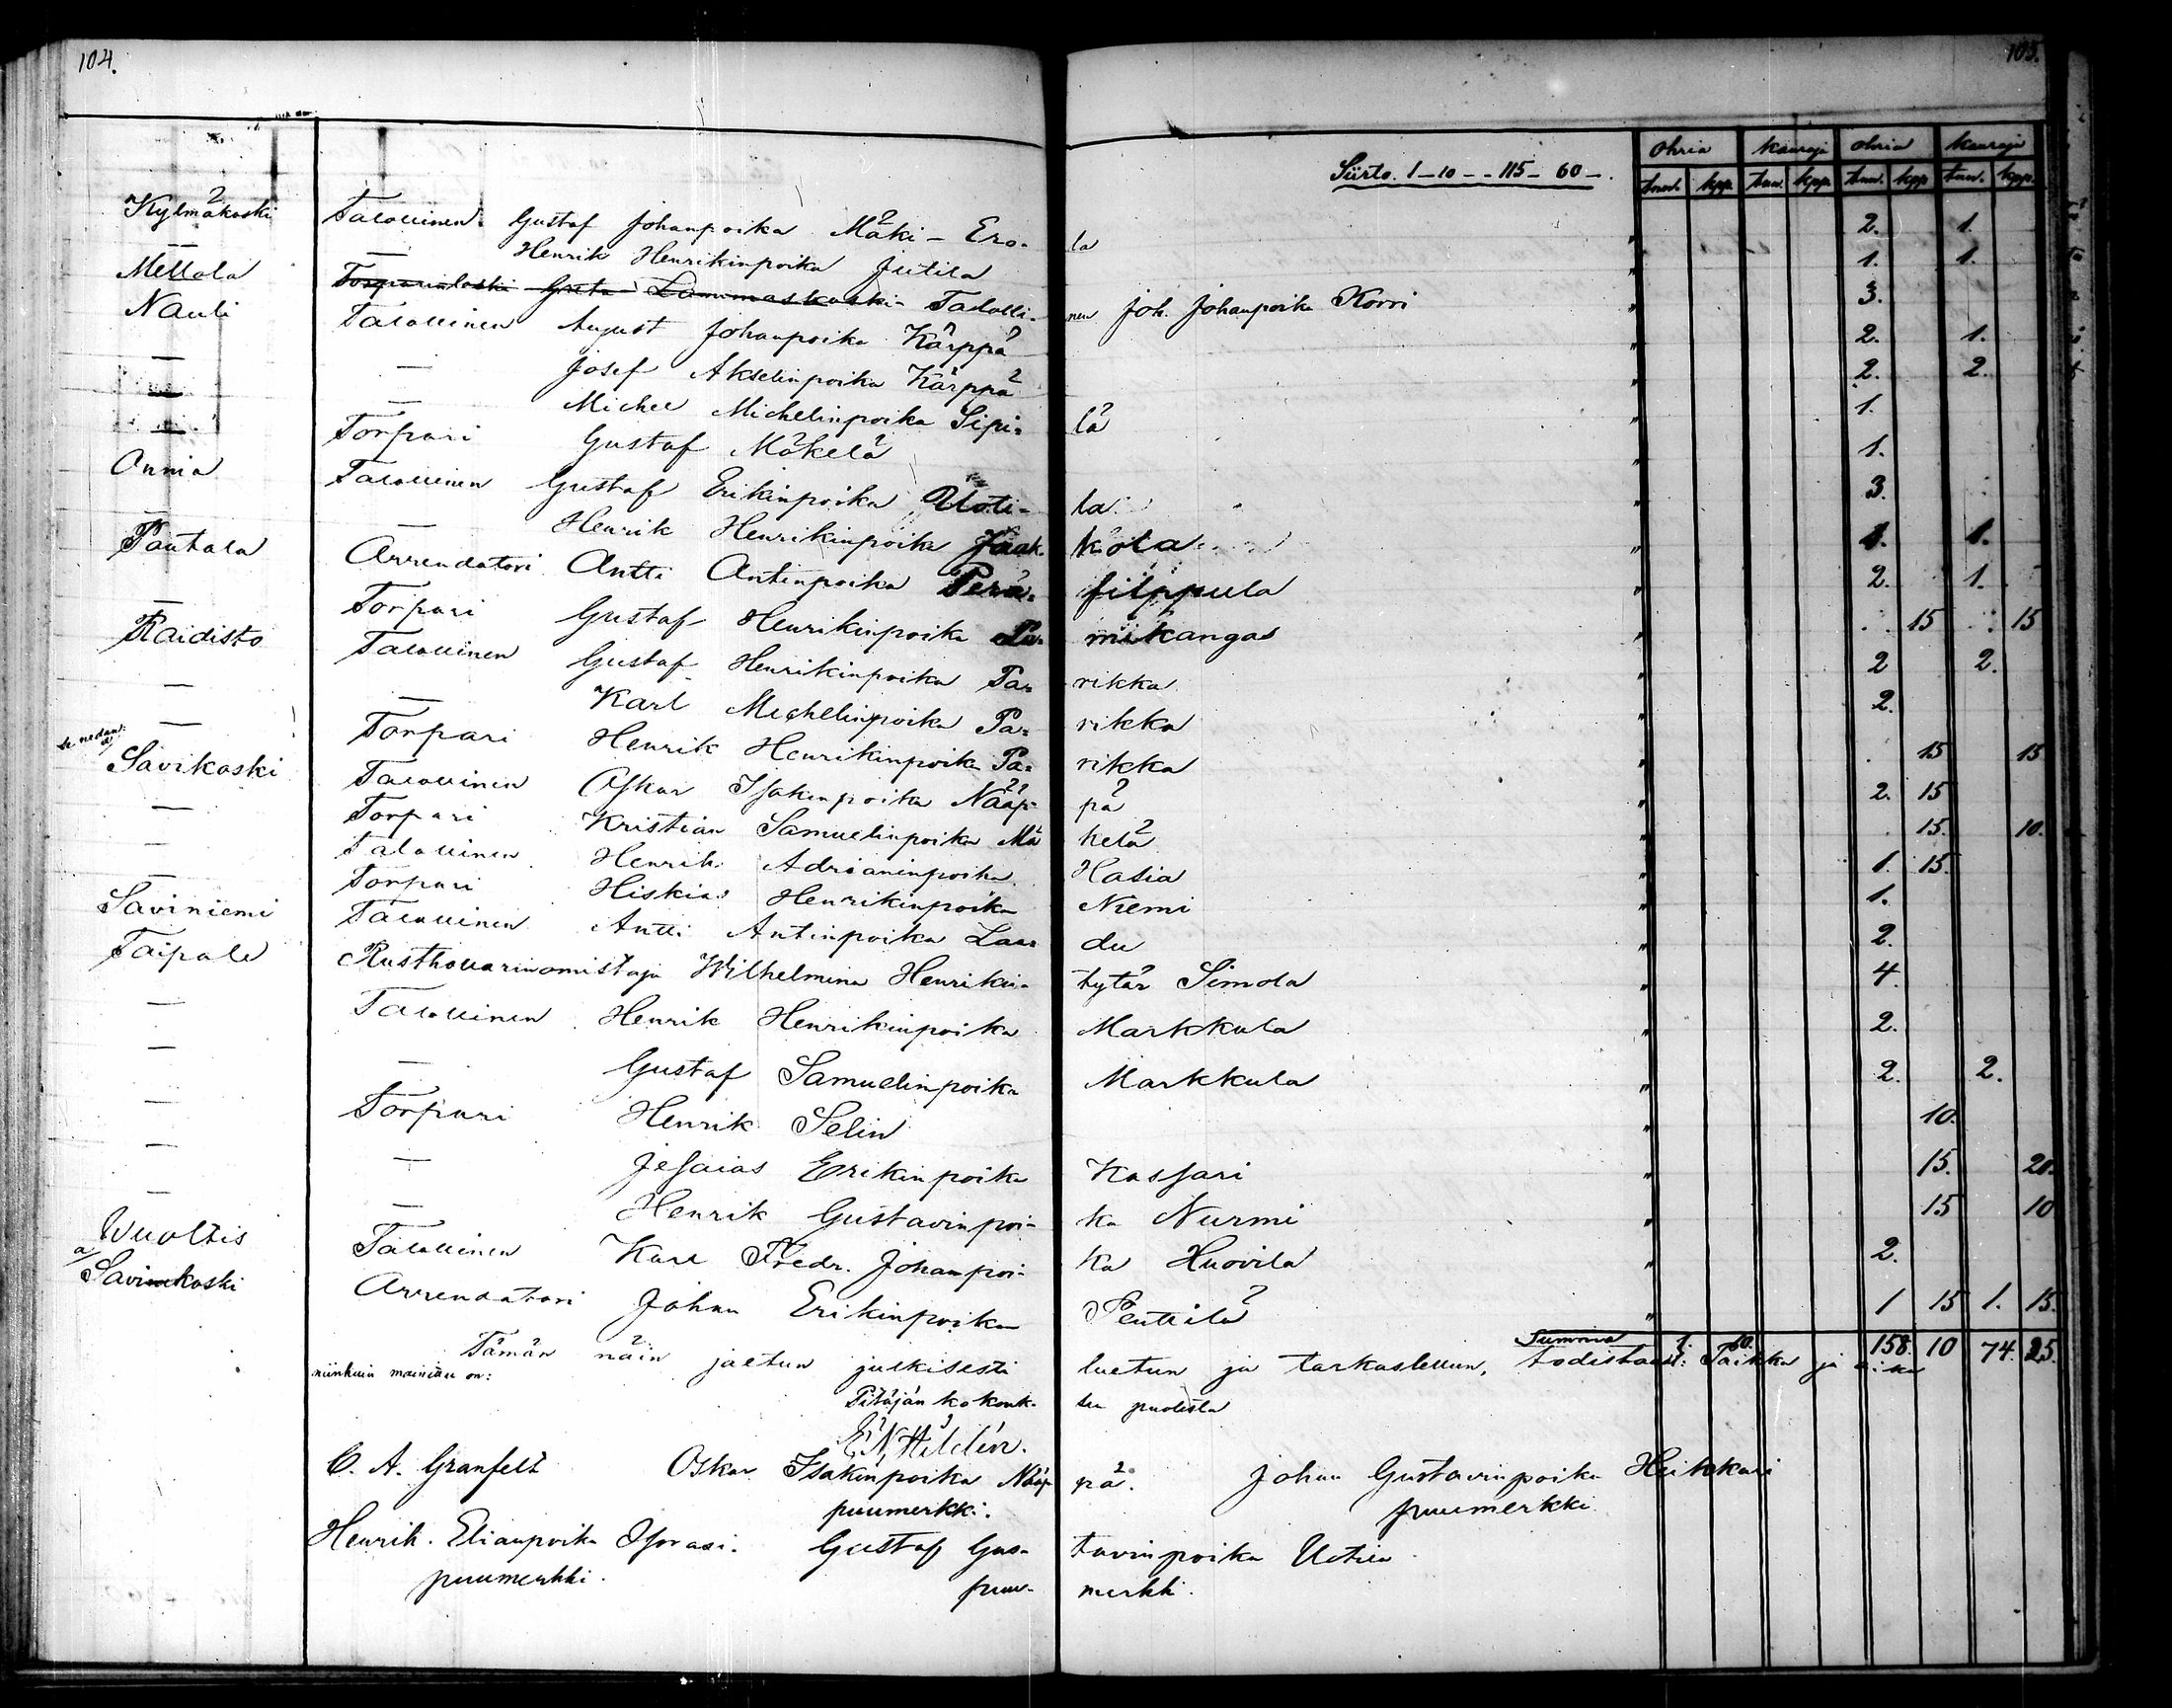 104.
105.
Siirto. 1-10 - - 115 - 60 -.
ohria kauroja ohria kauroja
tun. kpp. tun. kpp. tun. kpp. tun. kpp.
Kylmäkoski Talollinen Gustaf Johanpoika Mäki-Ero- la " 2. 1.
— — Henrik Henrikinpoika Jutila " 1. 1.
Mellola Torparinleski Greta Lammaskoski Talolli- nen Joh. Johanpoika Korri " 3.
Nauli Talollinen August Johanpoika Kärppä " 2. 1.
— — Josef Akselinpoika Kärppä " 2. 2.
— — Michel Michelinpoika Sipi- lä " 1.
— Torpari Gustaf Mäkelä " 1.
Onnia Talollinen Gustaf Erikinpoika Uoti- la " 3.
— Henrik Henrikinpoika Jaak- kola " 1. 1.
Pautala Arrendatori Antti Antinpoika Perä- filppula " 2. 1.
— Torpari Gustaf Henrikinpoika mikangas " 15 15
Raidisto Talollinen Gustaf Henrikinpoika Pa- rikka " 2 2.
— — Karl Michelinpoika Pa- rikka " 2.
— Torpari Henrik Henrikinpoika Pa- rikka " 15 15
se nedan: a)
Savikoski Talollinen Oskar Isakinpoika Nääp- pä " 2. 15
— Torpari Kristian Samuelinpoika Mä kelä " 15. 10.
— Talollinen Henrik Adrianinpoika Hasia " 1. 15.
— Torpari Hiskias Henrikinpoika Niemi " 1.
Saviniemi Talollinen Antti Antinpoika Lau- du " 2.
Taipale Rusthollarinomistaja Wilhelmina Henrikin- tytär Simola " 4.
— Talollinen Henrik Henrikinpoika Markkula " 2.
— — Gustaf Samuelinpoika Markkula " 2. 2.
— Torpari Henrik Selin " 10.
— — Jesaias Erikinpoika Kassari " 15. 20.
— — Henrik Gustavinpoi- ka Nurmi " 15 10
Wuoltis Talollinen Karl Fredr. Johanpoi- ka Huovila " 2.
a/ Savikoski Arrendatori Johan Erikinpoika Penttilä " 1 15 1. 15.
Summa 1. 10. 158. 10 74. 25.
Tämän näin jaetun julkisesti luetun ja tarkastellun, todistaa: Paikka ja aika
niinkuin mainittu on:
Pitäjän kokouk- sen puolesta
E. N. Hildén.
C. A. Granfelt Oskar Isakinpoika Nääp- pä. Johan Gustavinpoika Heikkari
puumerkki. puumerkki
Henrik Elianpoika Gustaf Gus- tavinpoika Uotila
puumerkki. puu- merkki.